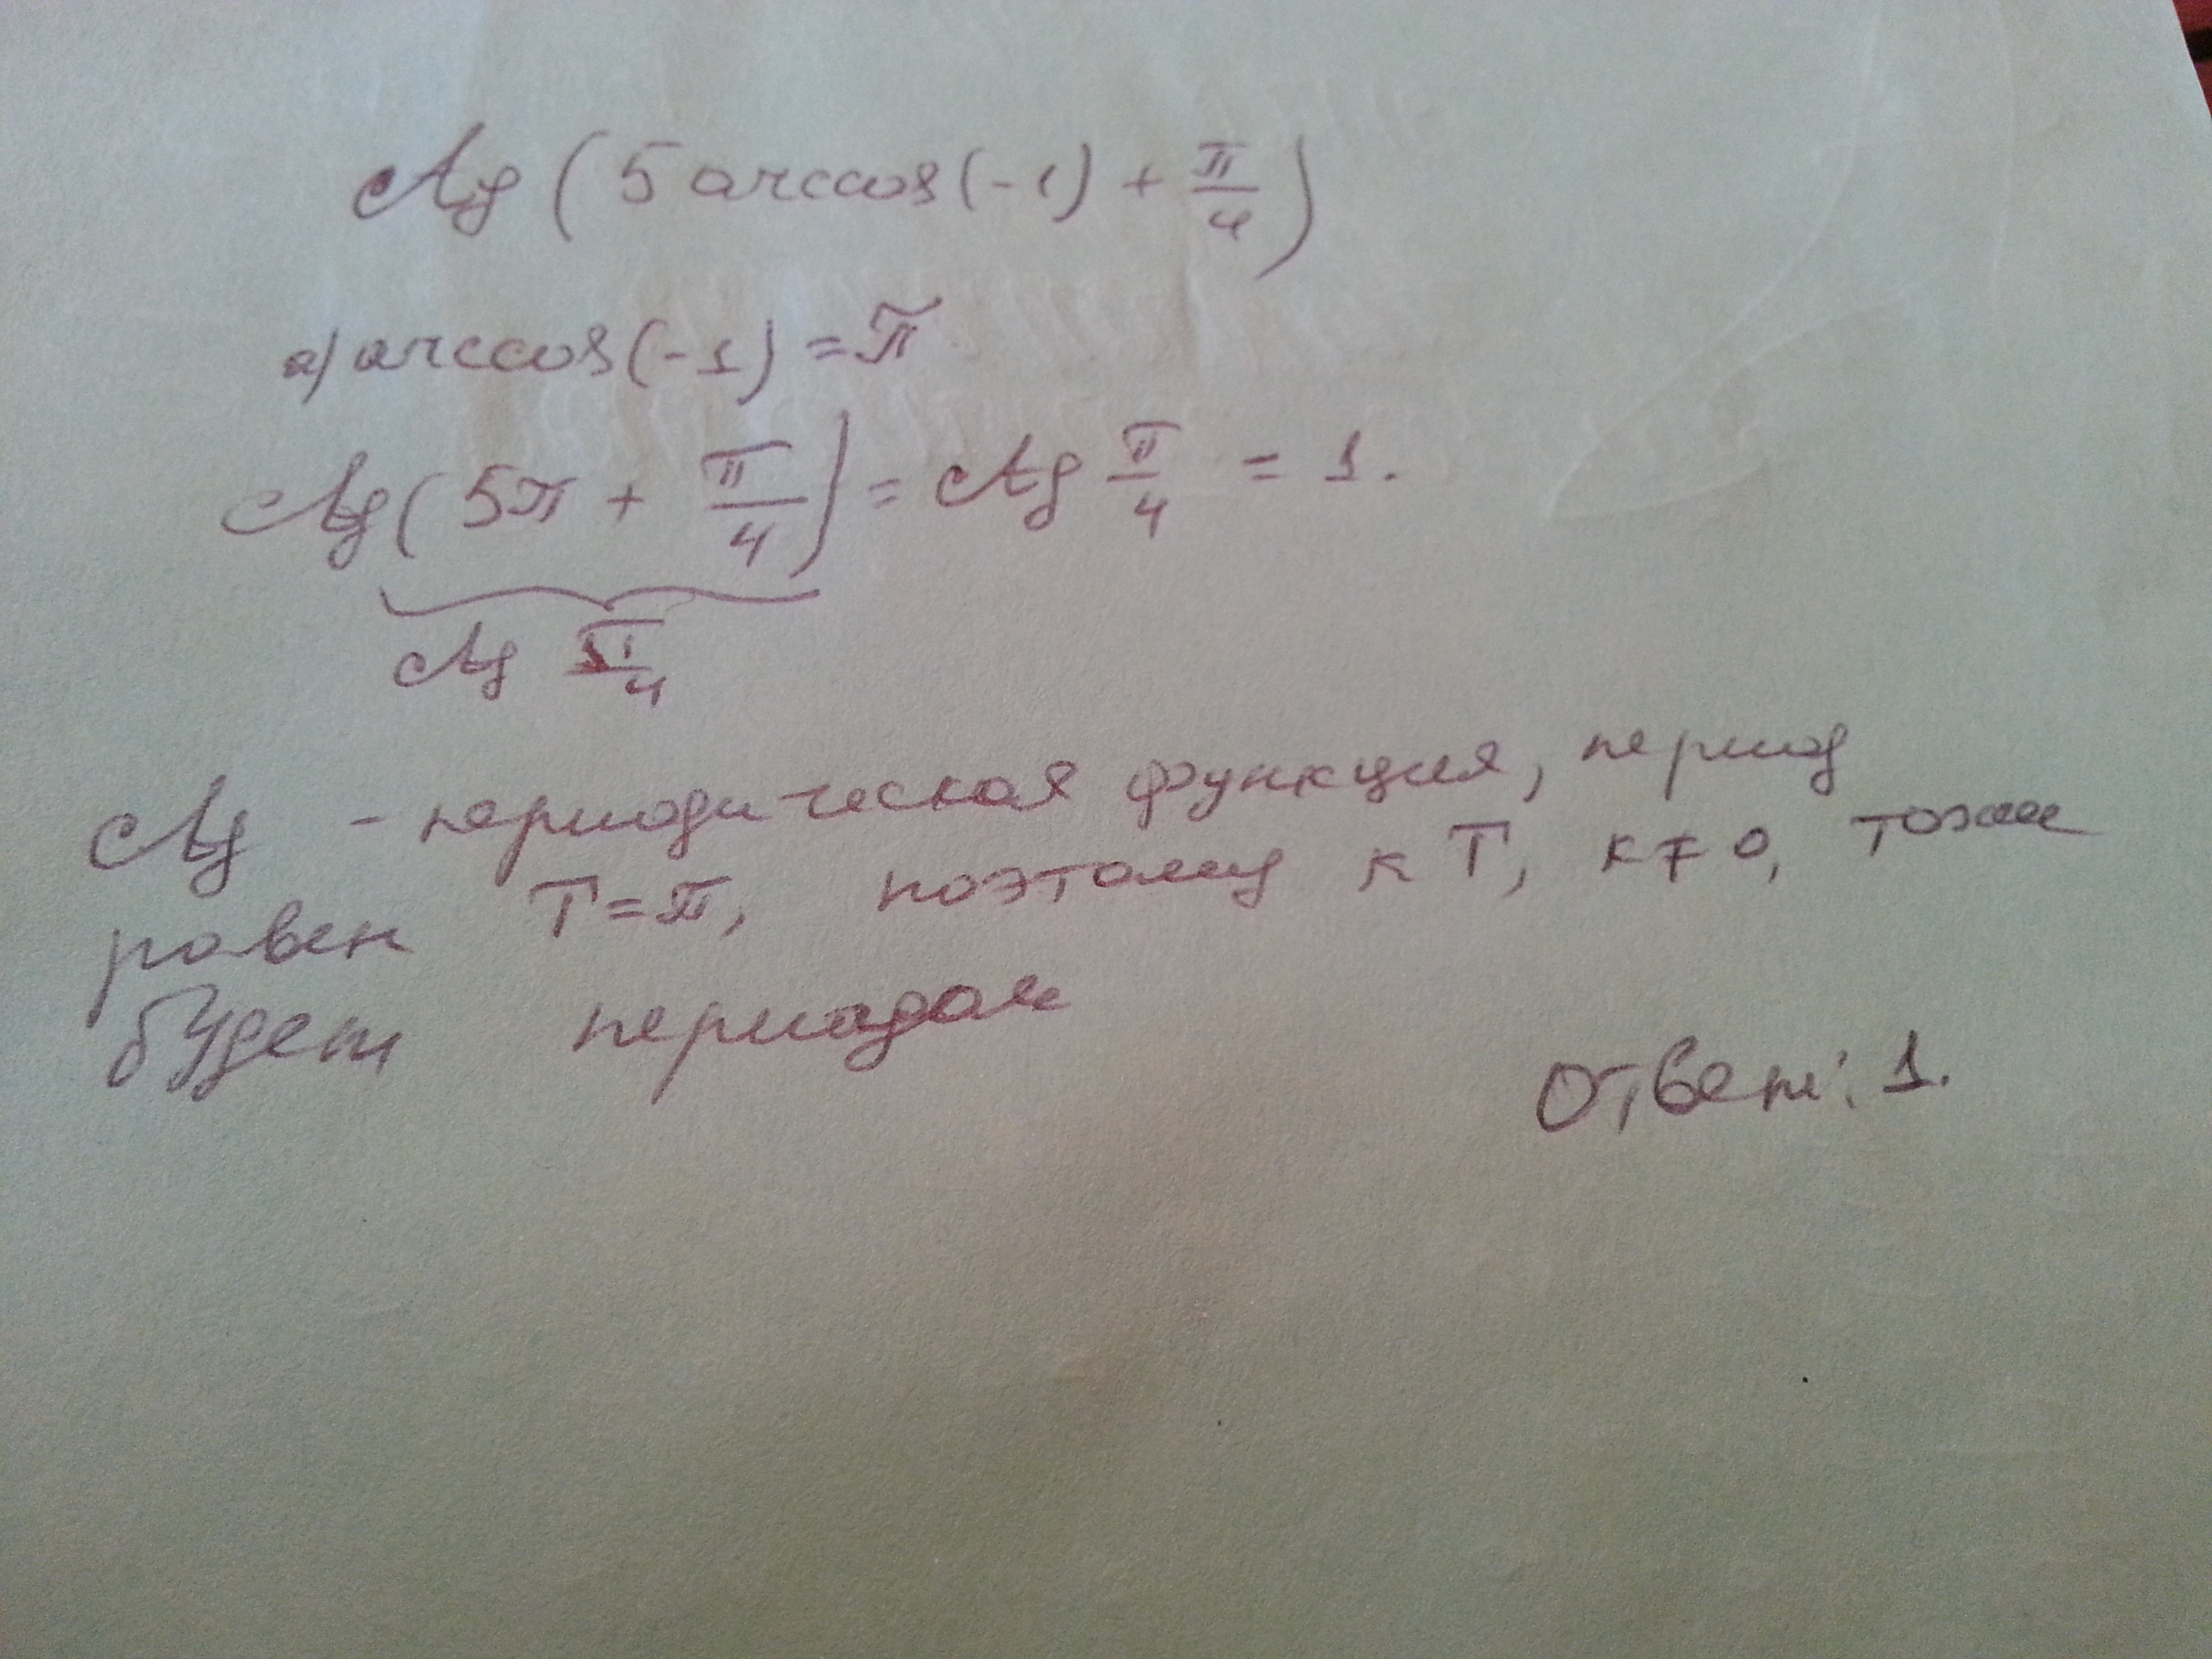 ctg ( 5 arccos(-1) + π/4 )
a) arccos(-1) = π
ctg( 5π + π/4 ) = ctg π/4 = 1.
ctg π/4
ctg - периодическая функция, период
равен T=π, поэтому кT, к≠0, тоже
будет периодом
Ответ: 1.